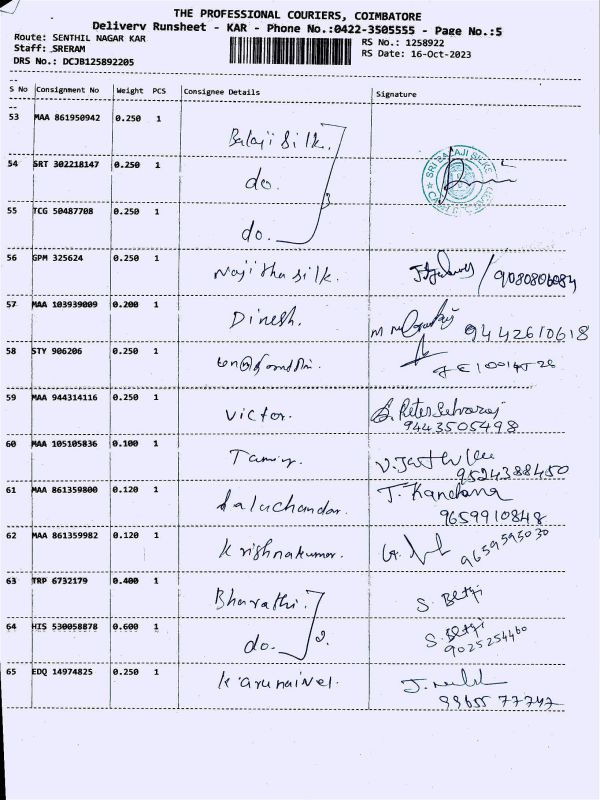 THE PROFESSIONAL COURIERS, COIMBATORE
Delivery Runsheet - KAR - Phone No.:0422-3505555 - Page No.:5
Route: SENTHIL NAGAR KAR
RS No.: 1258922
Staff: SRERAM
RS Date: 16-Oct-2023
DRS No.: DCJB125892205
S No Consignment No Weight PCS Consignee Details Signature
53 MAA 861950942 0.250 1 Balaji Silk.
54 SRT 302218147 0.250 1 do. 3 SRI BALAJI SILKS
55 TCG 50487708 0.250 1 do.
56 GPM 325624 0.250 1 Najitha silk. 9080806084
57 MAA 103939009 0.200 1 Dinesh. 9442610618
58 STY 906206 0.250 1
59 MAA 944314116 0.250 1 Victor. S. Peter Selvaraj
9443505498
60 MAA 105105836 0.100 1 9524388450
61 MAA 861359800 0.120 1 Baluchandar. T. Kanchana
9659910848
62 MAA 861359982 0.120 1 Krishnakumar. 9659595030
63 TRP 6732179 0.400 1 Bharathi. S. Betzi
64 HIS 530058878 0.600 1 do. 2. S. Betzi
9025254460
65 EDQ 14974825 0.250 1 Karunaivel.
99655 77747